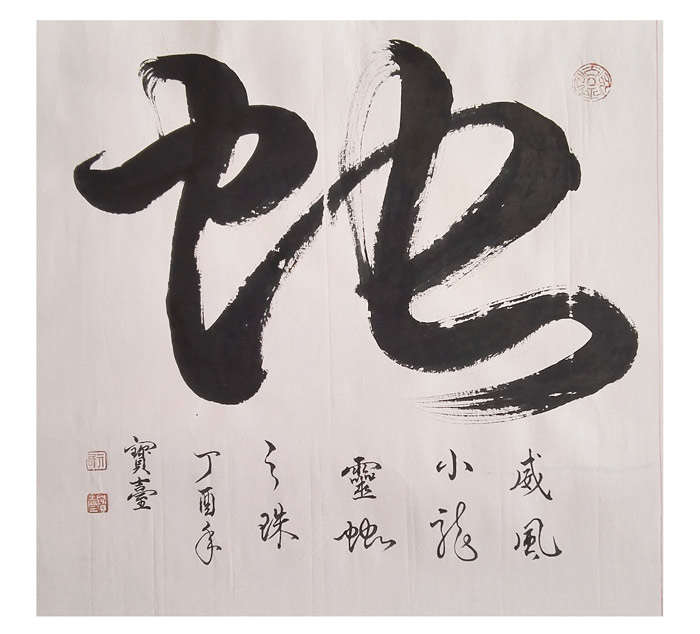 蛇
威風
小龍
靈虵
之珠
丁酉年
寶臺